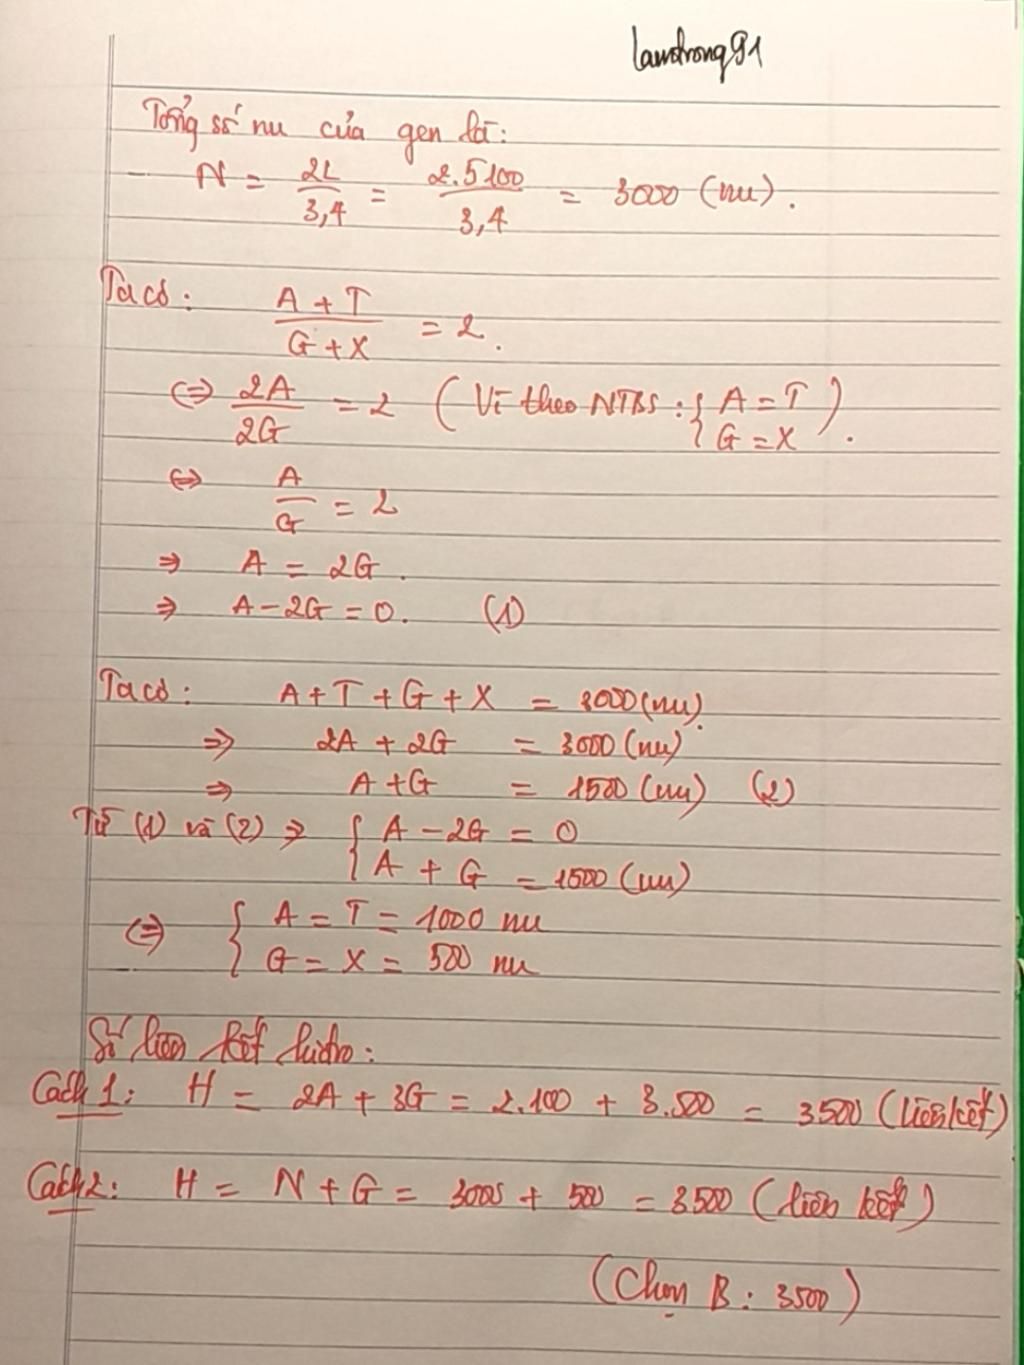 lamtrong91
Tổng số nu của gen là:
N = 2L/3,4 = 2.5100/3,4 = 3000 (nu).
Ta có: A + T / G + X = 2.
⇔ 2A/2G = 2 (Vì theo NTBS: { A = T G = X ).
⇔ A/G = 2
⇒ A = 2G.
⇒ A − 2G = 0. (1)
Ta có: A + T + G + X = 3000 (nu).
⇒ 2A + 2G = 3000 (nu)
⇒ A + G = 1500 (nu) (2)
Từ (1) và (2) ⇒ { A − 2G = 0
A + G = 1500 (nu)
⇔ { A = T = 1000 nu
G = X = 500 nu
Số liên kết hidro:
Cách 1: H = 2A + 3G = 2.100 + 3.500 = 3500 (liên kết)
Cách 2: H = N + G = 3000 + 500 = 3500 (liên kết)
(Chọn B: 3500)